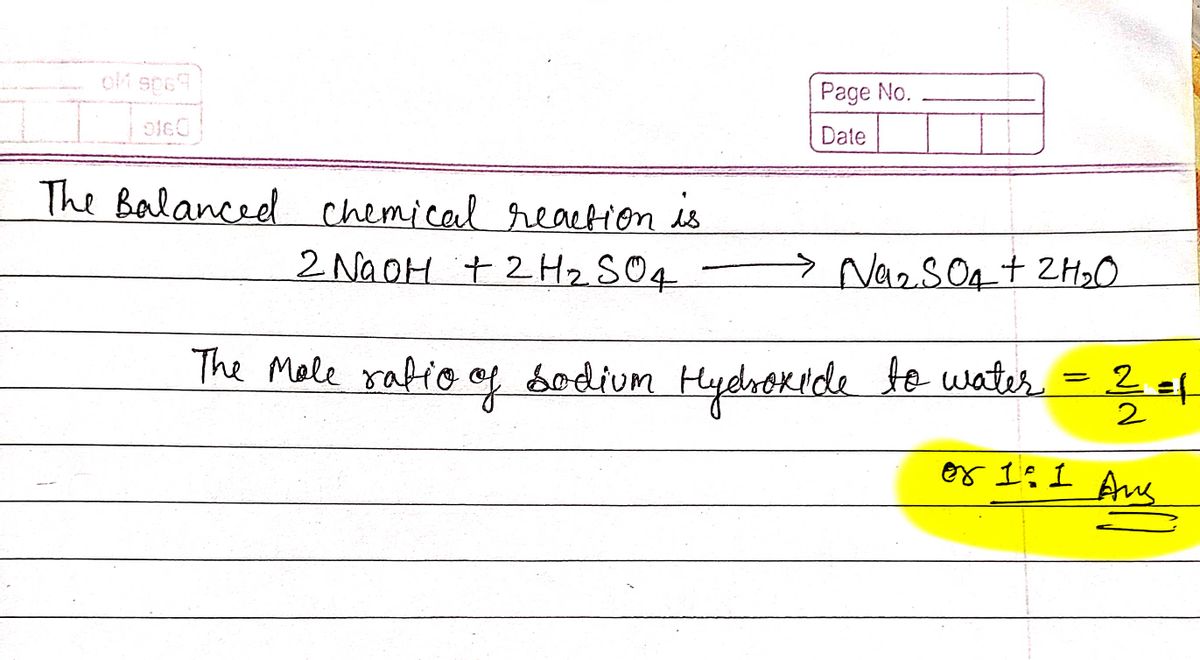 Page No.
Date
Page No
Date
The Balanced chemical reaction is
2 NaOH + 2 H₂SO₄ ⟶ Na₂SO₄ + 2H₂O
The Mole ratio of Sodium Hydroxide to water = 2/2 = 1
or 1:1 Ans